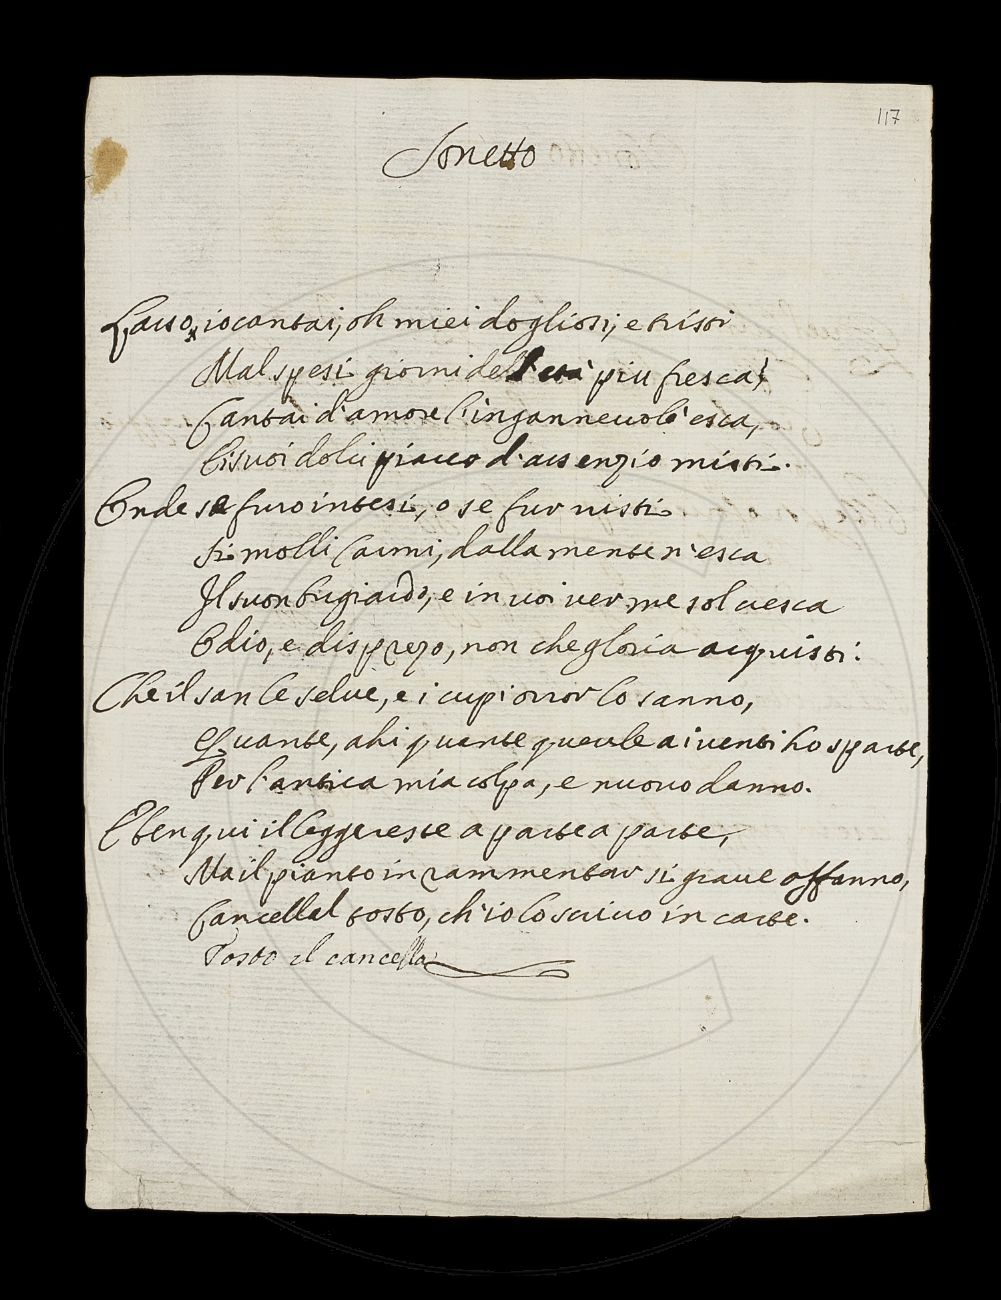 117
Sonetto
Lasso, io cantai, oh miei dogliosi, e tristi
Mal spesi giorni dell'età piu fresca!
Cantai d'amore l'ingannevole esca,
E i suoi dolci piacer d'assenzio misti.
Onde se furo intesi, o se fur visti
Si molli carmi, dalla mente n'esca
Il suon bugiardo, e in voi ver me sol cresca
Odio, e disprezo, non che gloria acquisti.
Che il san le selve, e i cupi orror lo sanno,
E quante, ahi quante querele ai venti ho sparte,
Per l'antica mia colpa, e nuovo danno.
E ben qui il leggereste a parte a parte,
Ma il pianto in rammentar si grave affanno,
Cancellal tosto, ch'io lo scrivo in carte.
Tosto il cancella